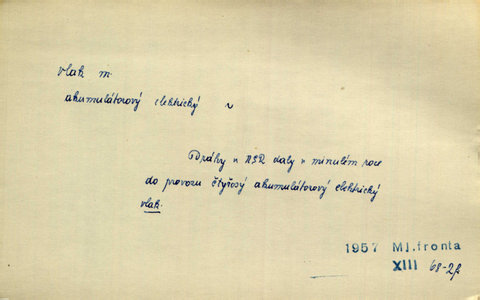 vlak m.
akumulátorový elektrický ~
Dráhy v NSR daly v minulém roce
do provozu čtyřosý akumulátorový elektrický
vlak.
1957 Ml.fronta
XIII 68-2